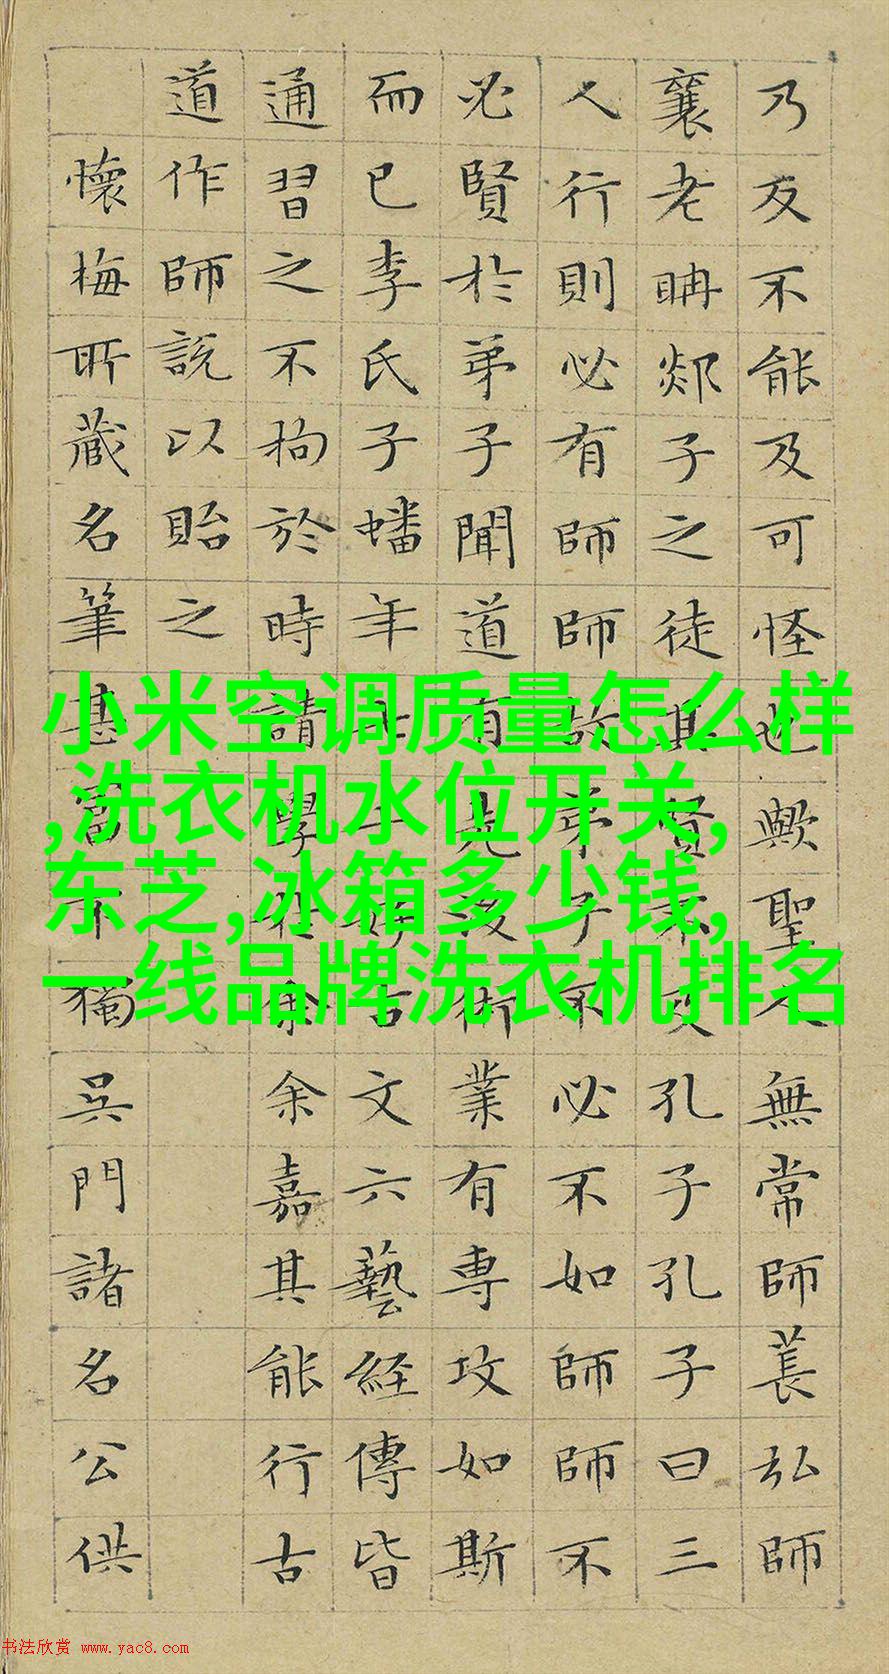 乃反不能及可怪也歟聖人無常師萇弘師
襄老聃郯子之徒其賢不及孔子孔子曰三
人行則必有師師故弟子不必不如師師不
必賢於弟子聞道有先後術業有專攻如斯
而已李氏子蟠年十七好古文六藝經傳皆
通習之不拘於時請學於余余嘉其能行古
道作師說以貽之
懷梅所藏名筆甚富不獨吳門諸名公供
小米空调质量怎么样
,洗衣机水位开关,
东芝,冰箱多少钱,
一线品牌洗衣机排名
书法欣赏 www.yac8.com